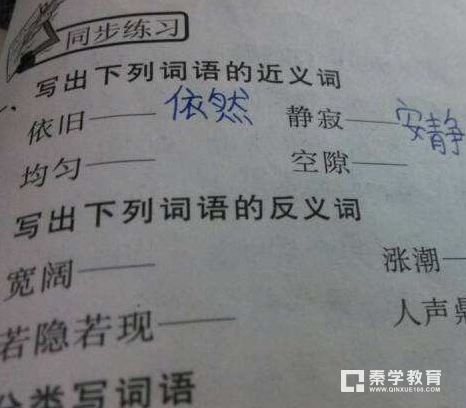 同步练习
写出下列词语的近义词
依旧——依然 静寂——安静
均匀—— 空隙——
写出下列词语的反义词
宽阔—— 涨潮——
若隐若现—— 人声
分类写词语
秦学教育
WWW.QINXUE100.COM